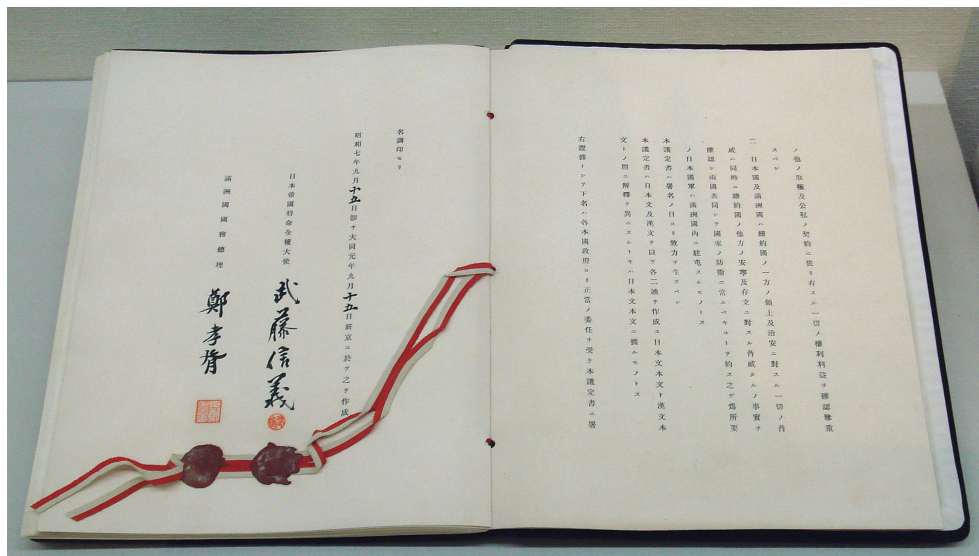 ノ他ノ取極及公私ノ契約ニ依リ有スル一切ノ權利利益ヲ確認尊重
スベシ
二 日本國及滿洲國ハ締約國ノ一方ノ領土及治安ニ對スル一切ノ脅
威ハ同時ニ締約國ノ他方ノ安寧及存立ニ對スル脅威タルノ事實ヲ
確認シ兩國共同シテ國家ノ防衞ニ當ルベキコトヲ約ス之ガ爲所要
ノ日本國軍ハ滿洲國內ニ駐屯スルモノトス
本議定書ハ署名ノ日ヨリ效力ヲ生ズベシ
本議定書ハ日本文及漢文ヲ以テ各二通ヲ作成ス日本文本文ト漢文本
文トノ間ニ解釋ヲ異ニスルトキハ日本文本文ニ據ルモノトス
右證據トシテ下名ハ各本國政府ヨリ正當ノ委任ヲ受ケ本議定書ニ署
名調印セリ
昭和七年九月十五日卽チ大同元年九月十五日新京ニ於テ之ヲ作成
日本帝國特命全權大使 武藤信義
滿洲國國務總理 鄭孝胥